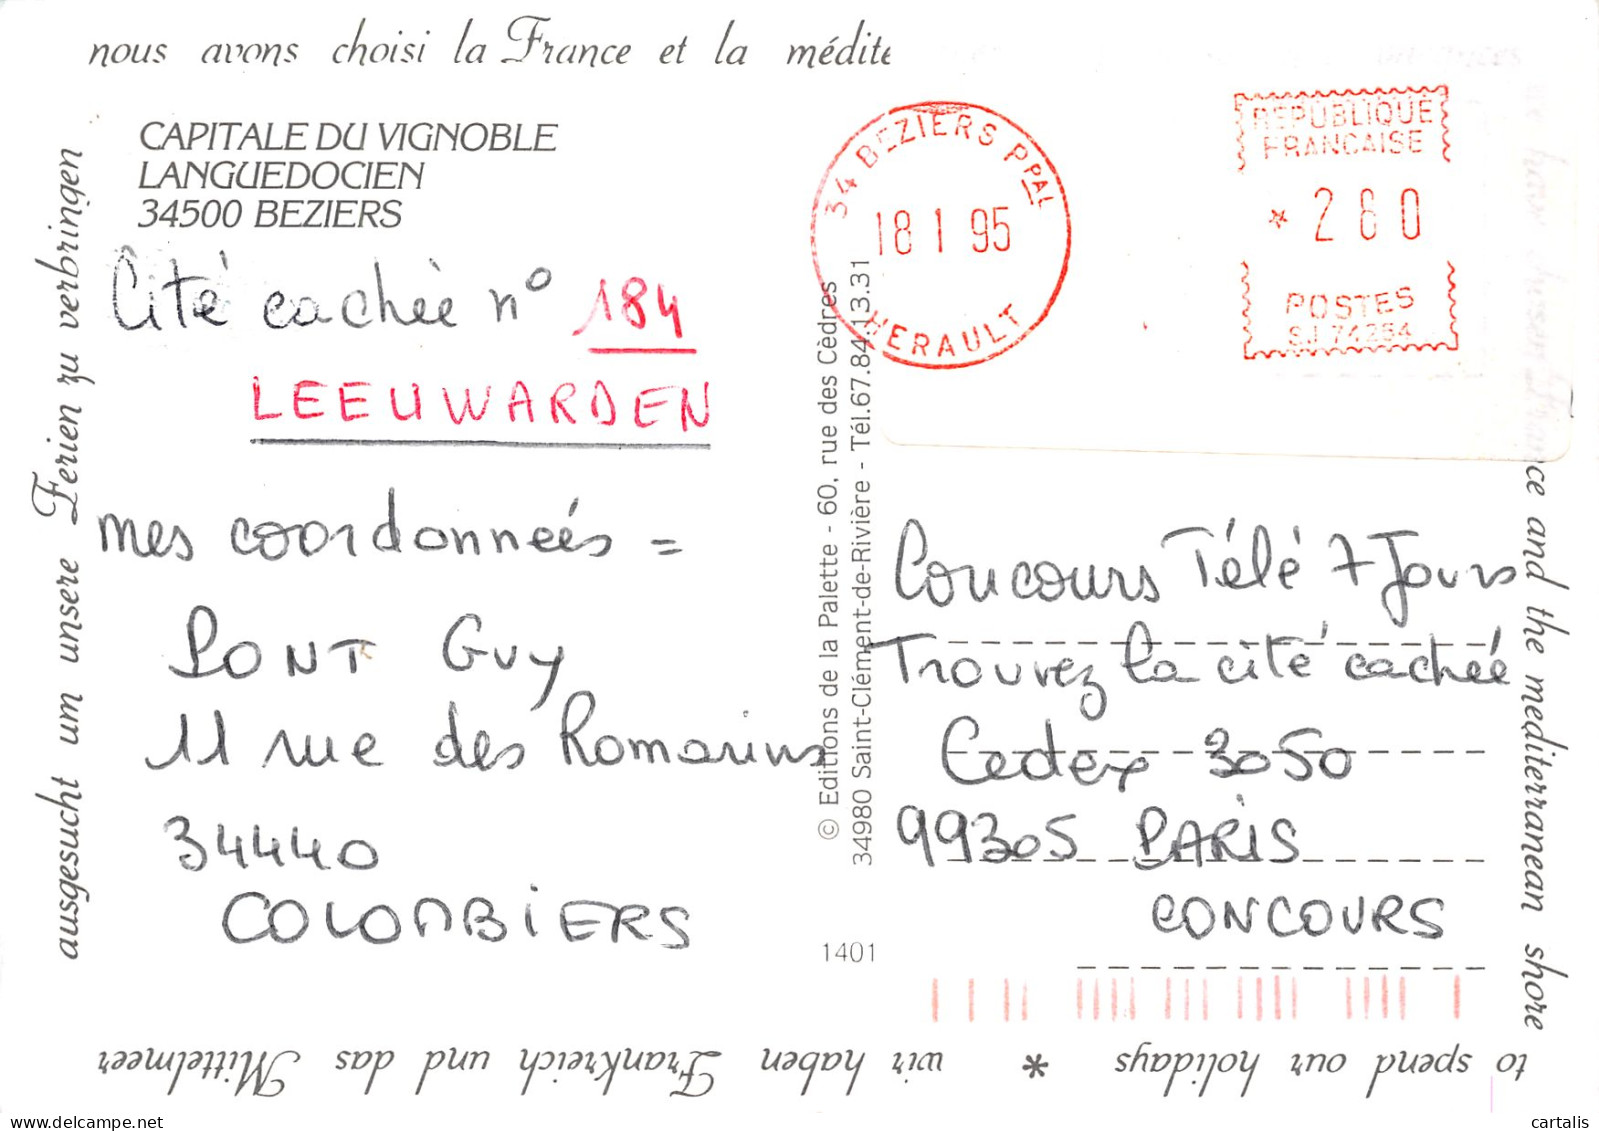 nous avons choisi la France et la médite
CAPITALE DU VIGNOBLE
LANGUEDOCIEN
34500 BEZIERS
Cité cachée n° 184
LEEUWARDEN
mes coordonnées =
PONT Guy
11 rue des Romarins
34440
COLOMBIERS
34 BEZIERS PPAL
18 1 95
HERAULT
REPUBLIQUE
FRANCAISE
* 260
POSTES
S.J 74264
© Editions de la Palette - 60, rue des Cèdres
34980 Saint-Clément-de-Rivière - Tél.67.84.13.31
1401
Concours Télé 7 Jours
Trouvez la cité cachée
Cedex 3050
99305 PARIS
CONCOURS
we have chosen France and the mediterranean shore
to spend our holidays * wir haben Frankreich und das Mittelmeer
ausgesucht um unsere Ferien zu verbringen
cartalis